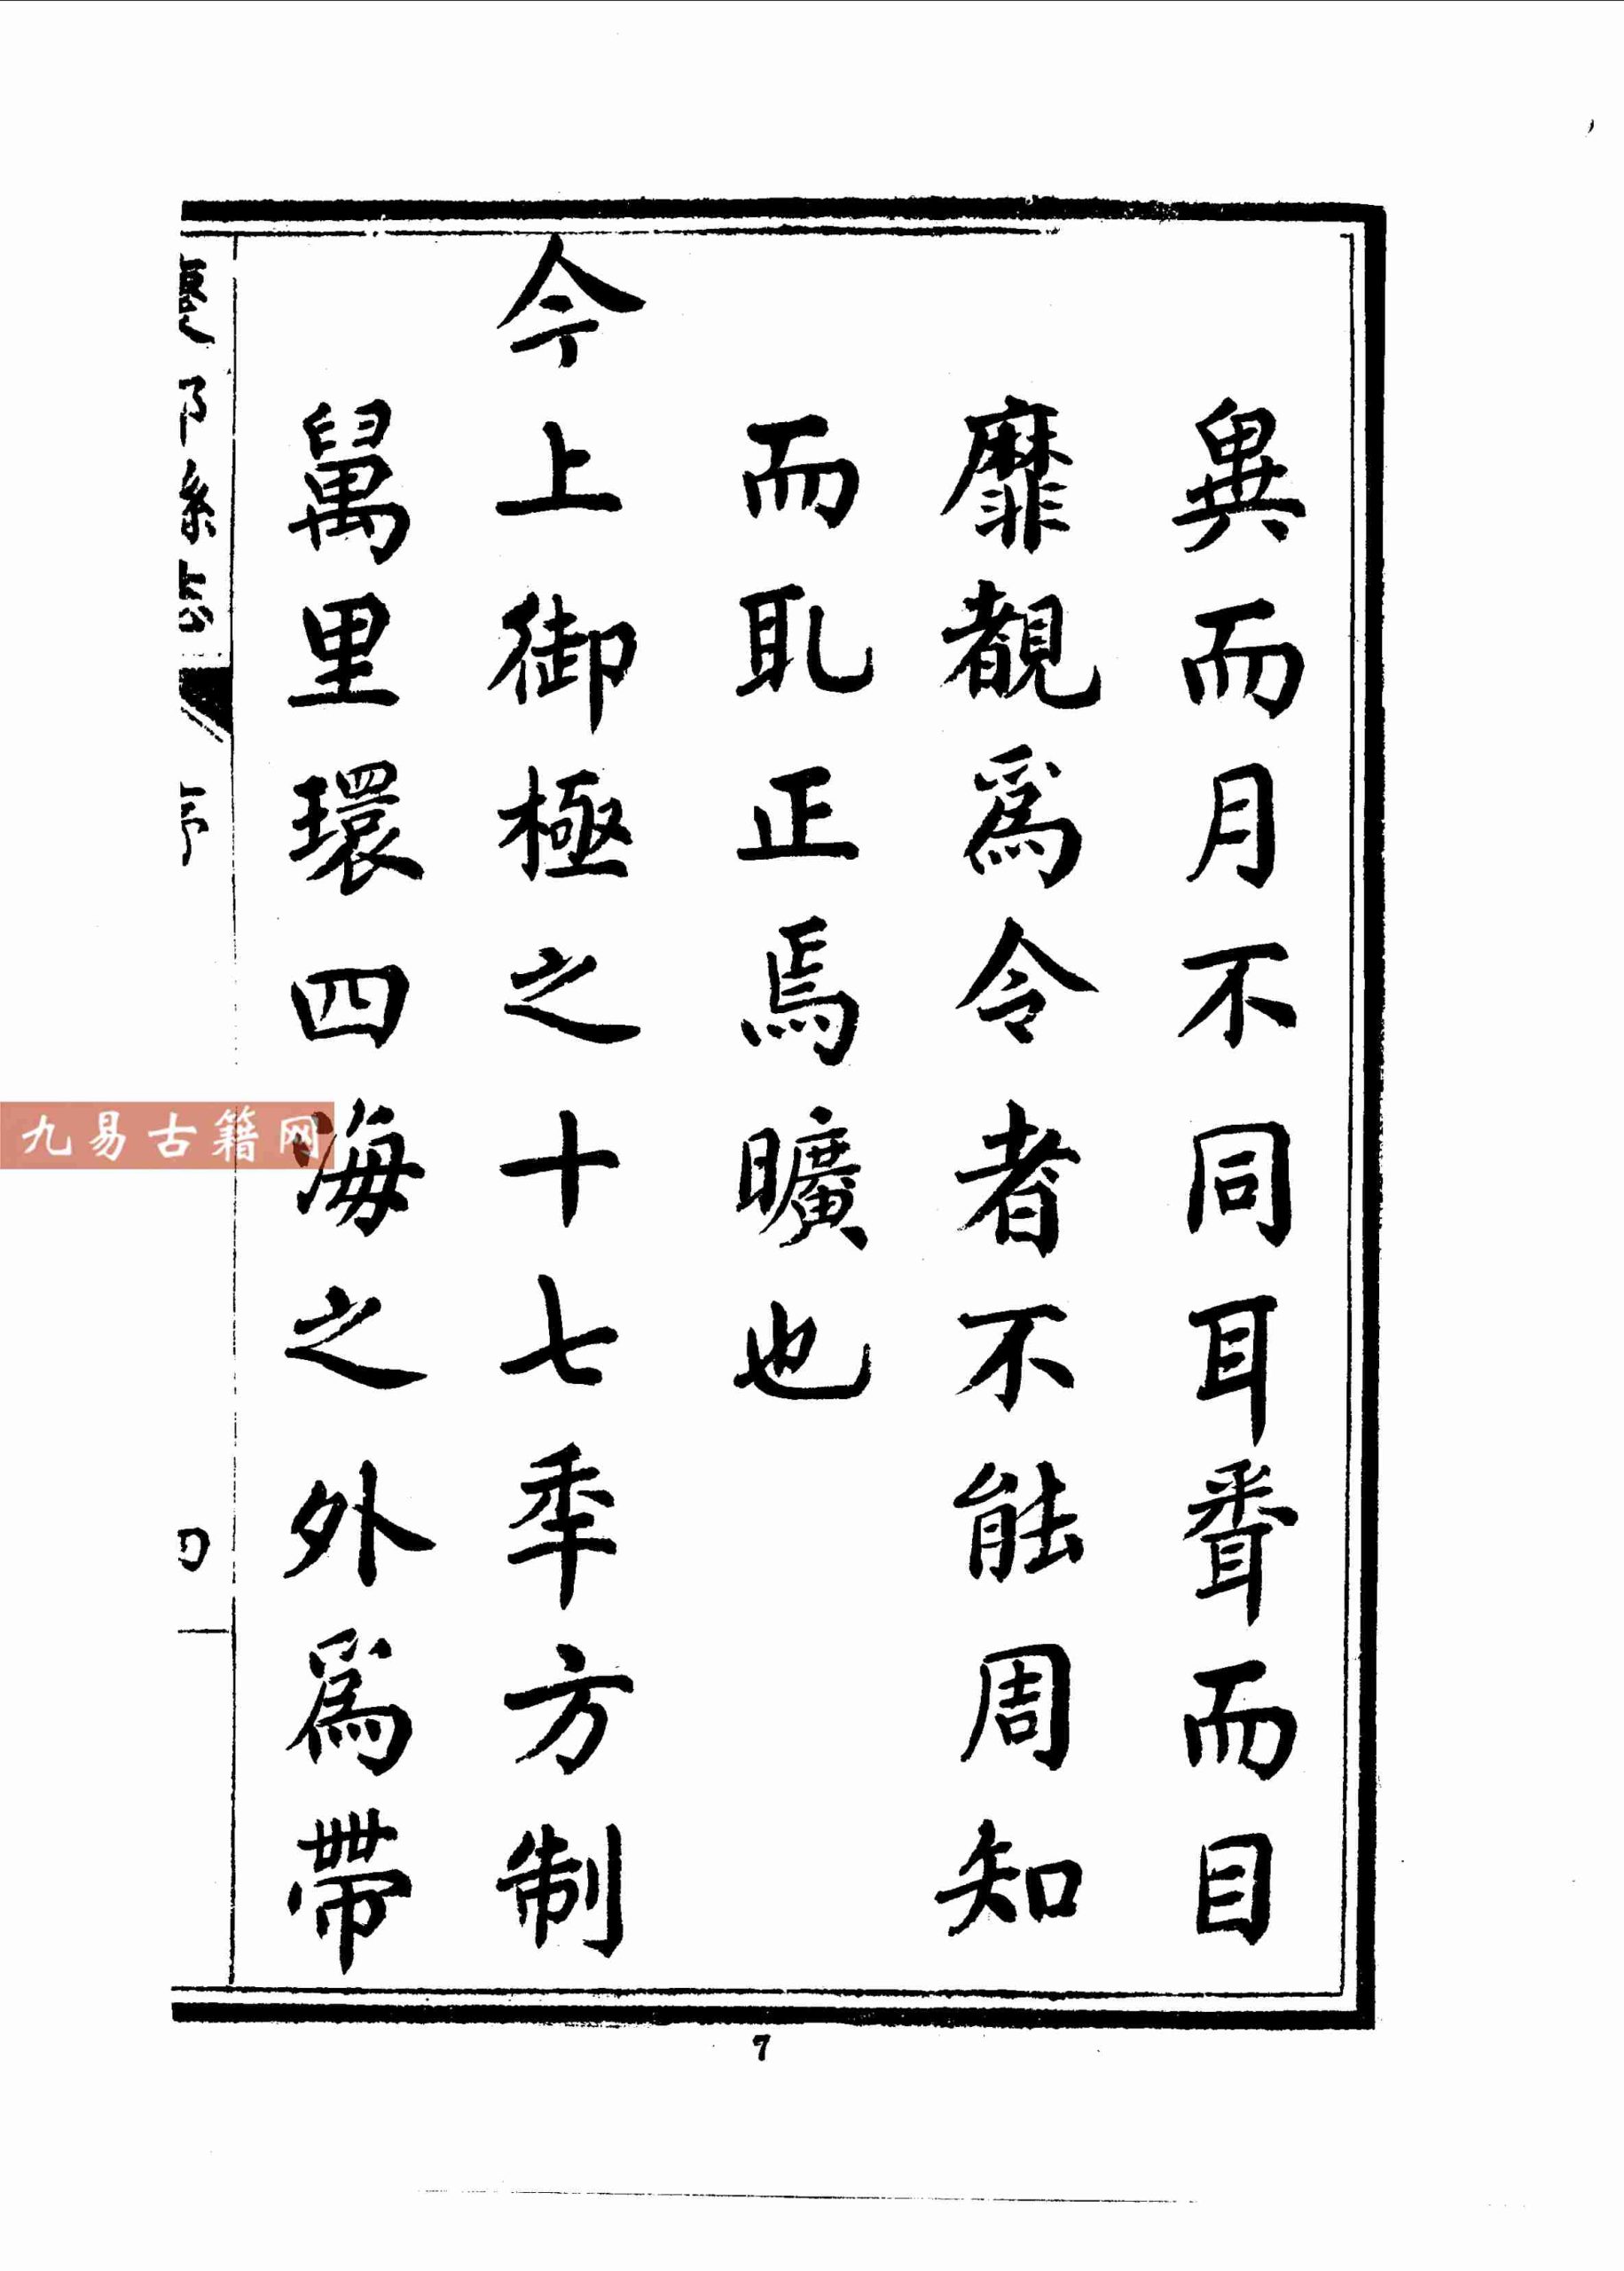 異而月不同耳聞而目
靡覩爲令者不能周知
而耴正焉曠也
今上御極之十七秊方制
萬里環四海之外爲帶
縣志
序
九易古籍网
7